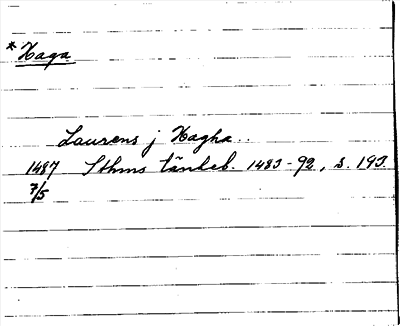 *Haga
Laurens j Hagha..
1487 Sthms tänkeb. 1483-92, s. 193.
7/5